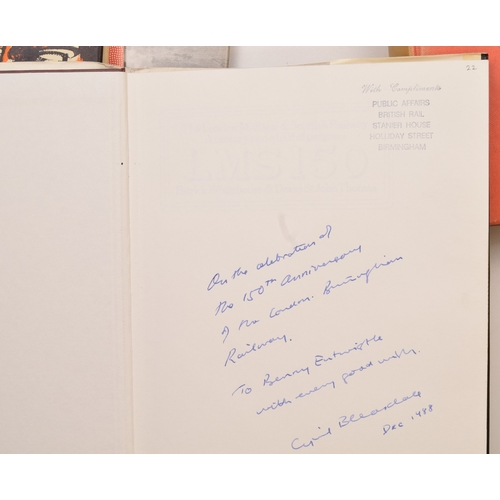 22
With Compliments
PUBLIC AFFAIRS
BRITISH RAIL
STANIER HOUSE
HOLLIDAY STREET
BIRMINGHAM
On the celebration of
the 150th anniversary
of the London. Birmingham
Railway.
To Benny Entwistle
with every good wish.
Cyril Bleasdale
Dec 1988